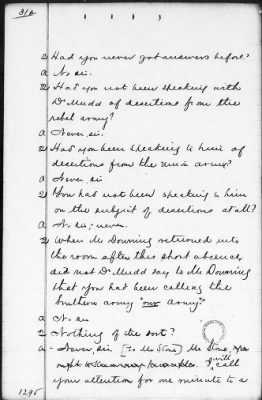 310
Q Had you never got answers before?
A No sir.
Q Had you not been speaking with
Dr Mudd of desertions from the
rebel army?
A Never, sir.
Q Had you been speaking to him of
desertions from the Union army?
A Never, sir
Q You had not been speaking to him
on the subject of desertions at all?
A No sir; never.
Q When Mr Downing returned into
the room after this short absence,
did not Dr Mudd say to Mr Downing
that you had been calling the
Southern army "our army"?
A No sir
Q Nothing of the sort?
A - Never, sir [To Mr Stone] Mr Stone,
I will call
your attention for one minute to a
1295